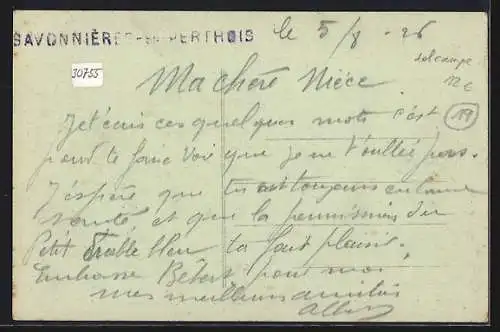 SAVONNIÈRES-en-PERTHOIS
le 5/8 - 26
30755
12 €
19
Ma chère Nièce
Je t'écris ces quelques mots c'est
pour te faire voir que je ne t'oublie pas.
J'éspère que tu est toujours en bonne
santé et que la permission du
Petit Diable bleu ta fait plaisir.
Embrasse Bébert pour moi
mes meilleurs amitiés